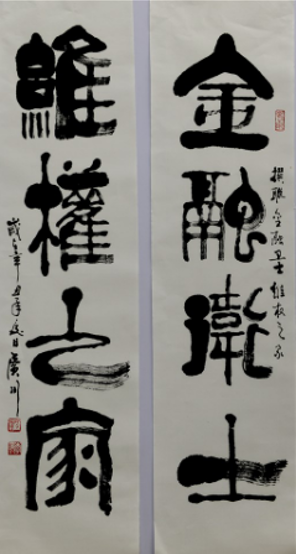 金融衛士
撰聯金融卫士維权之家
維權之家
歲在辛丑年